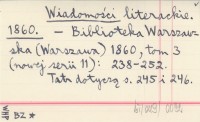 Wiadomości literackie.
1860. — Biblioteka Warszaw-
ska (Warszawa) 1860, tom 3
(nowej serii 11): 238-252.
Tatr dotyczą s. 245 i 246.
WHP BZ *